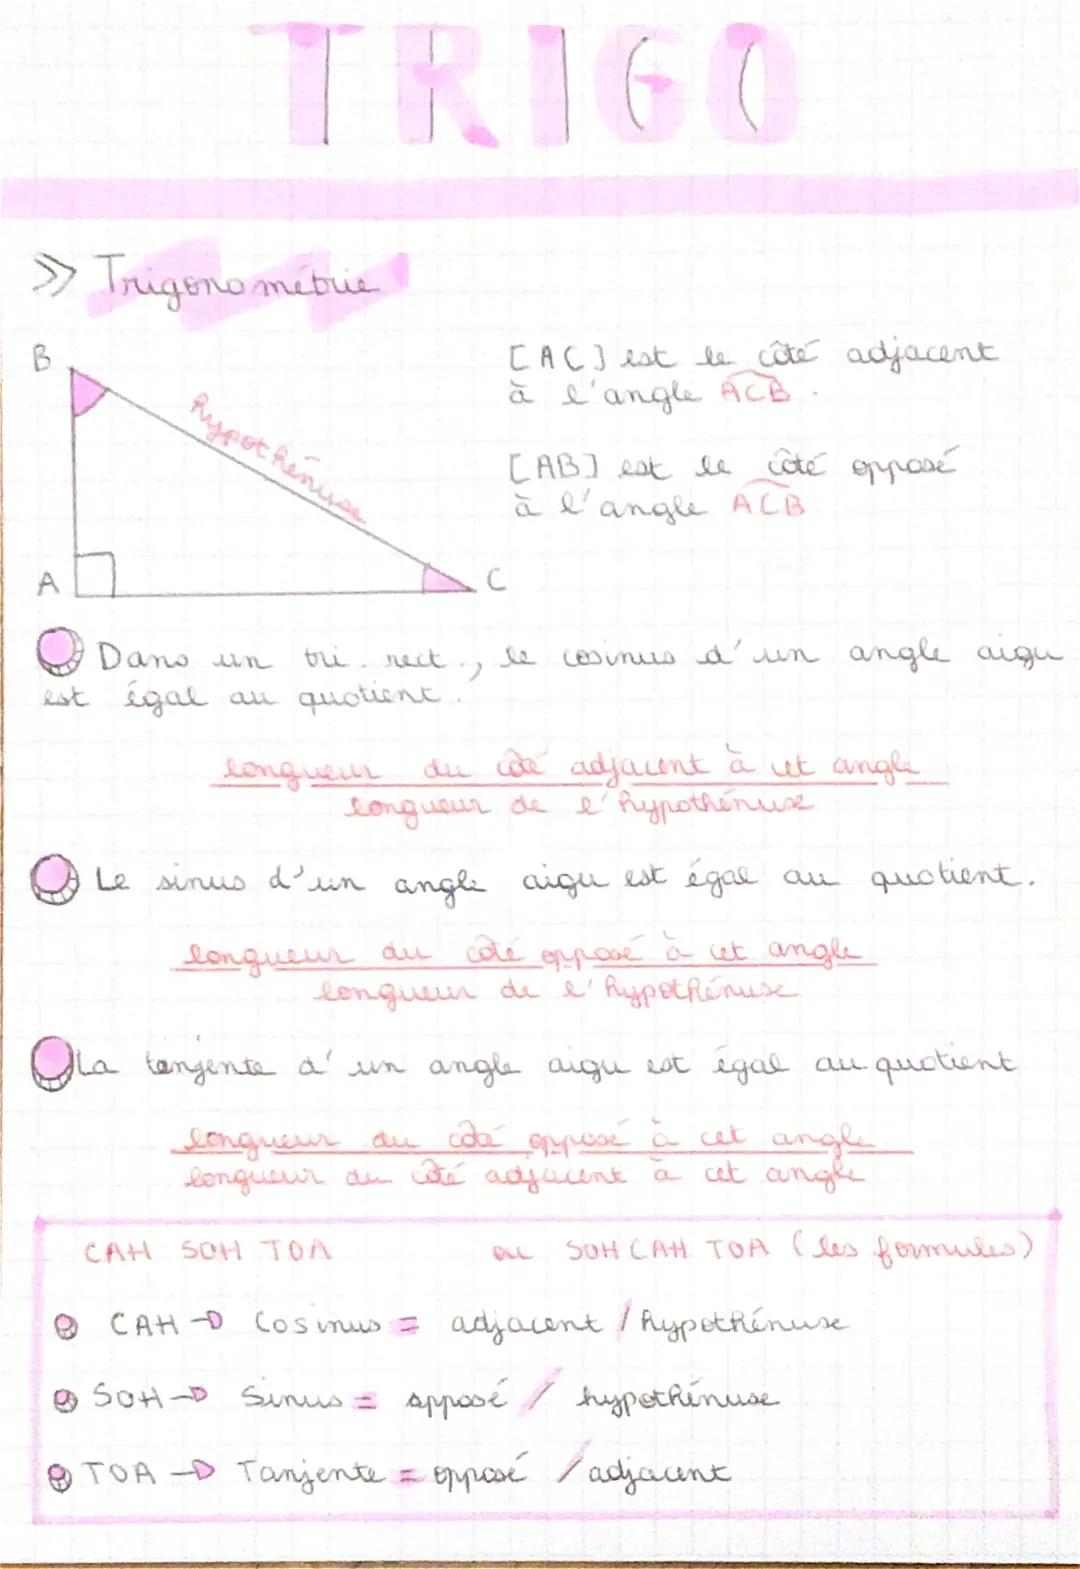 TRIGO
>> Trigonométrie
B
hypothénuse
A
C
[AC] est le côté adjacent
à l'angle ACB.
[AB] est le côté opposé
à l'angle ACB
Dans un tri. rect., le cosinus d'un angle aigu
est égal au quotient.
longueur du côté adjacent à cet angle
longueur de l'hypothénuse
Le sinus d'un angle aigu est égal au quotient.
longueur du côté opposé à cet angle
longueur de l'hypothénuse
La tanjente d'un angle aigu est égal au quotient
longueur du côté opposé à cet angle
longueur du côté adjacent à cet angle
CAH SOH TOA ou SOH CAH TOA (les formules)
CAH → Cosinus = adjacent / hypothénuse
SOH → Sinus = opposé / hypothénuse
TOA → Tanjente = opposé / adjacent